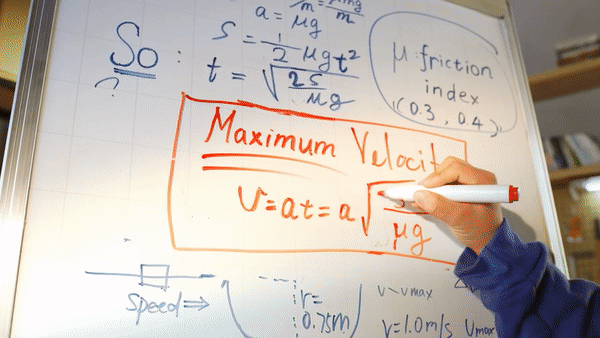 a = μmg/m = μg
So :
?
s = 1/2 μgt²
t = √(2s/μg)
μ friction
index
(0.3, 0.4)
Maximum Velocit
v = at = a√( /μg)
Speed ⇒
r =
0.75m
v ~ vmax
v = 1.0m/s vmax